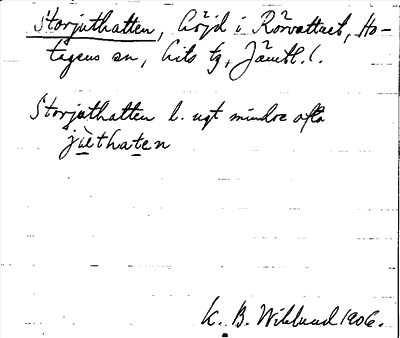 Storjuthatten, höjd i Rörvattnet, Ho-
tagens sn, Lits tg, Jämtl. l.
Storjuthatten l. ngt mindre ofta
jìethaten
K. B. Wiklund 1906.